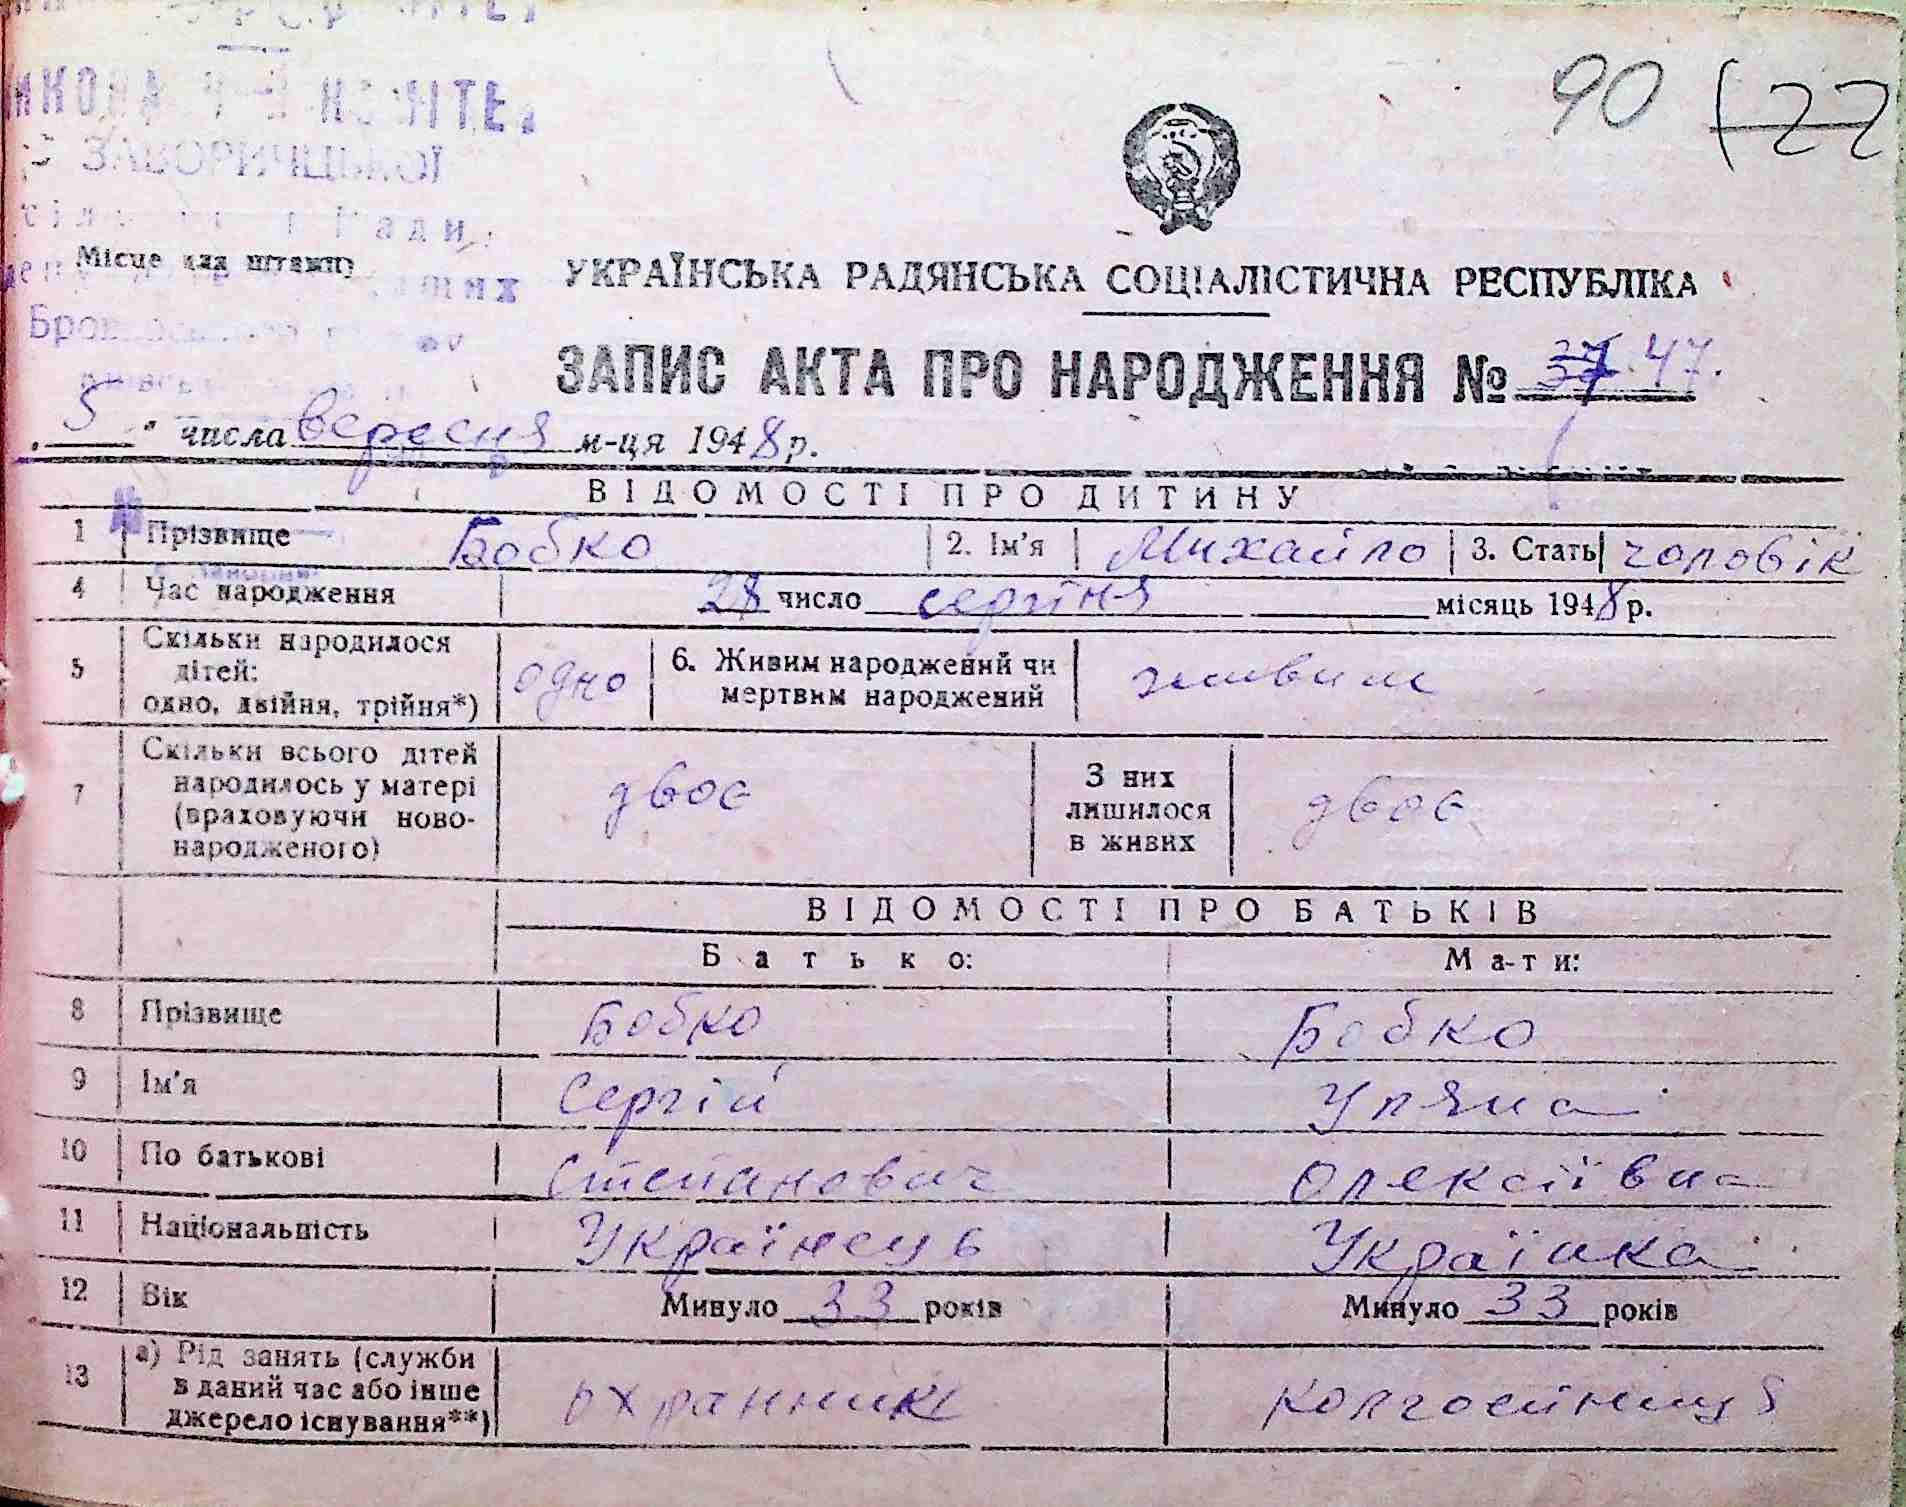 90 122
ЗАВОРИЧЦЬКОЇ
Місце для штампу
УКРАЇНСЬКА РАДЯНСЬКА СОЦІАЛІСТИЧНА РЕСПУБЛІКА
ЗАПИС АКТА ПРО НАРОДЖЕННЯ № 47.
„5" числа вересця м-ця 1948 р.
ВІДОМОСТІ ПРО ДИТИНУ
1 Прізвище Бобко 2. Ім'я Михайло 3. Стать чоловік
4 Час народження 28 число серпня місяць 1948 р.
5 Скільки народилося дітей: одно, двійня, трійня*) одно 6. Живим народжений чи мертвим народжений живим
7 Скільки всього дітей народилось у матері (враховуючи ново-народженого) двоє З них лишилося в живих двоє
ВІДОМОСТІ ПРО БАТЬКІВ
Батько: Мати:
8 Прізвище Бобко Бобко
9 Ім'я Сергій Уляна
10 По батькові Степанович Олексіївна
11 Національність Українець Українка
12 Вік Минуло 33 років Минуло 33 років
13 а) Рід занять (служби в даний час або інше джерело існування**) охранник колгоспниця